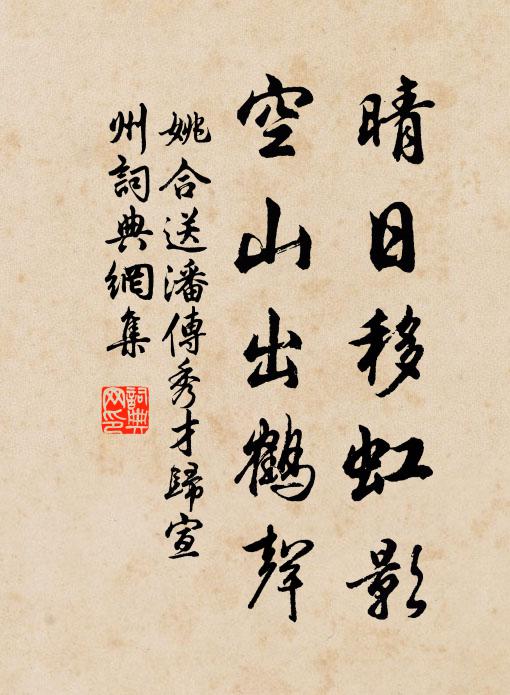 晴日移虹影
空山出鶴聲
姚合送潘傳秀才歸宣
州詞典網集
詞典
网印